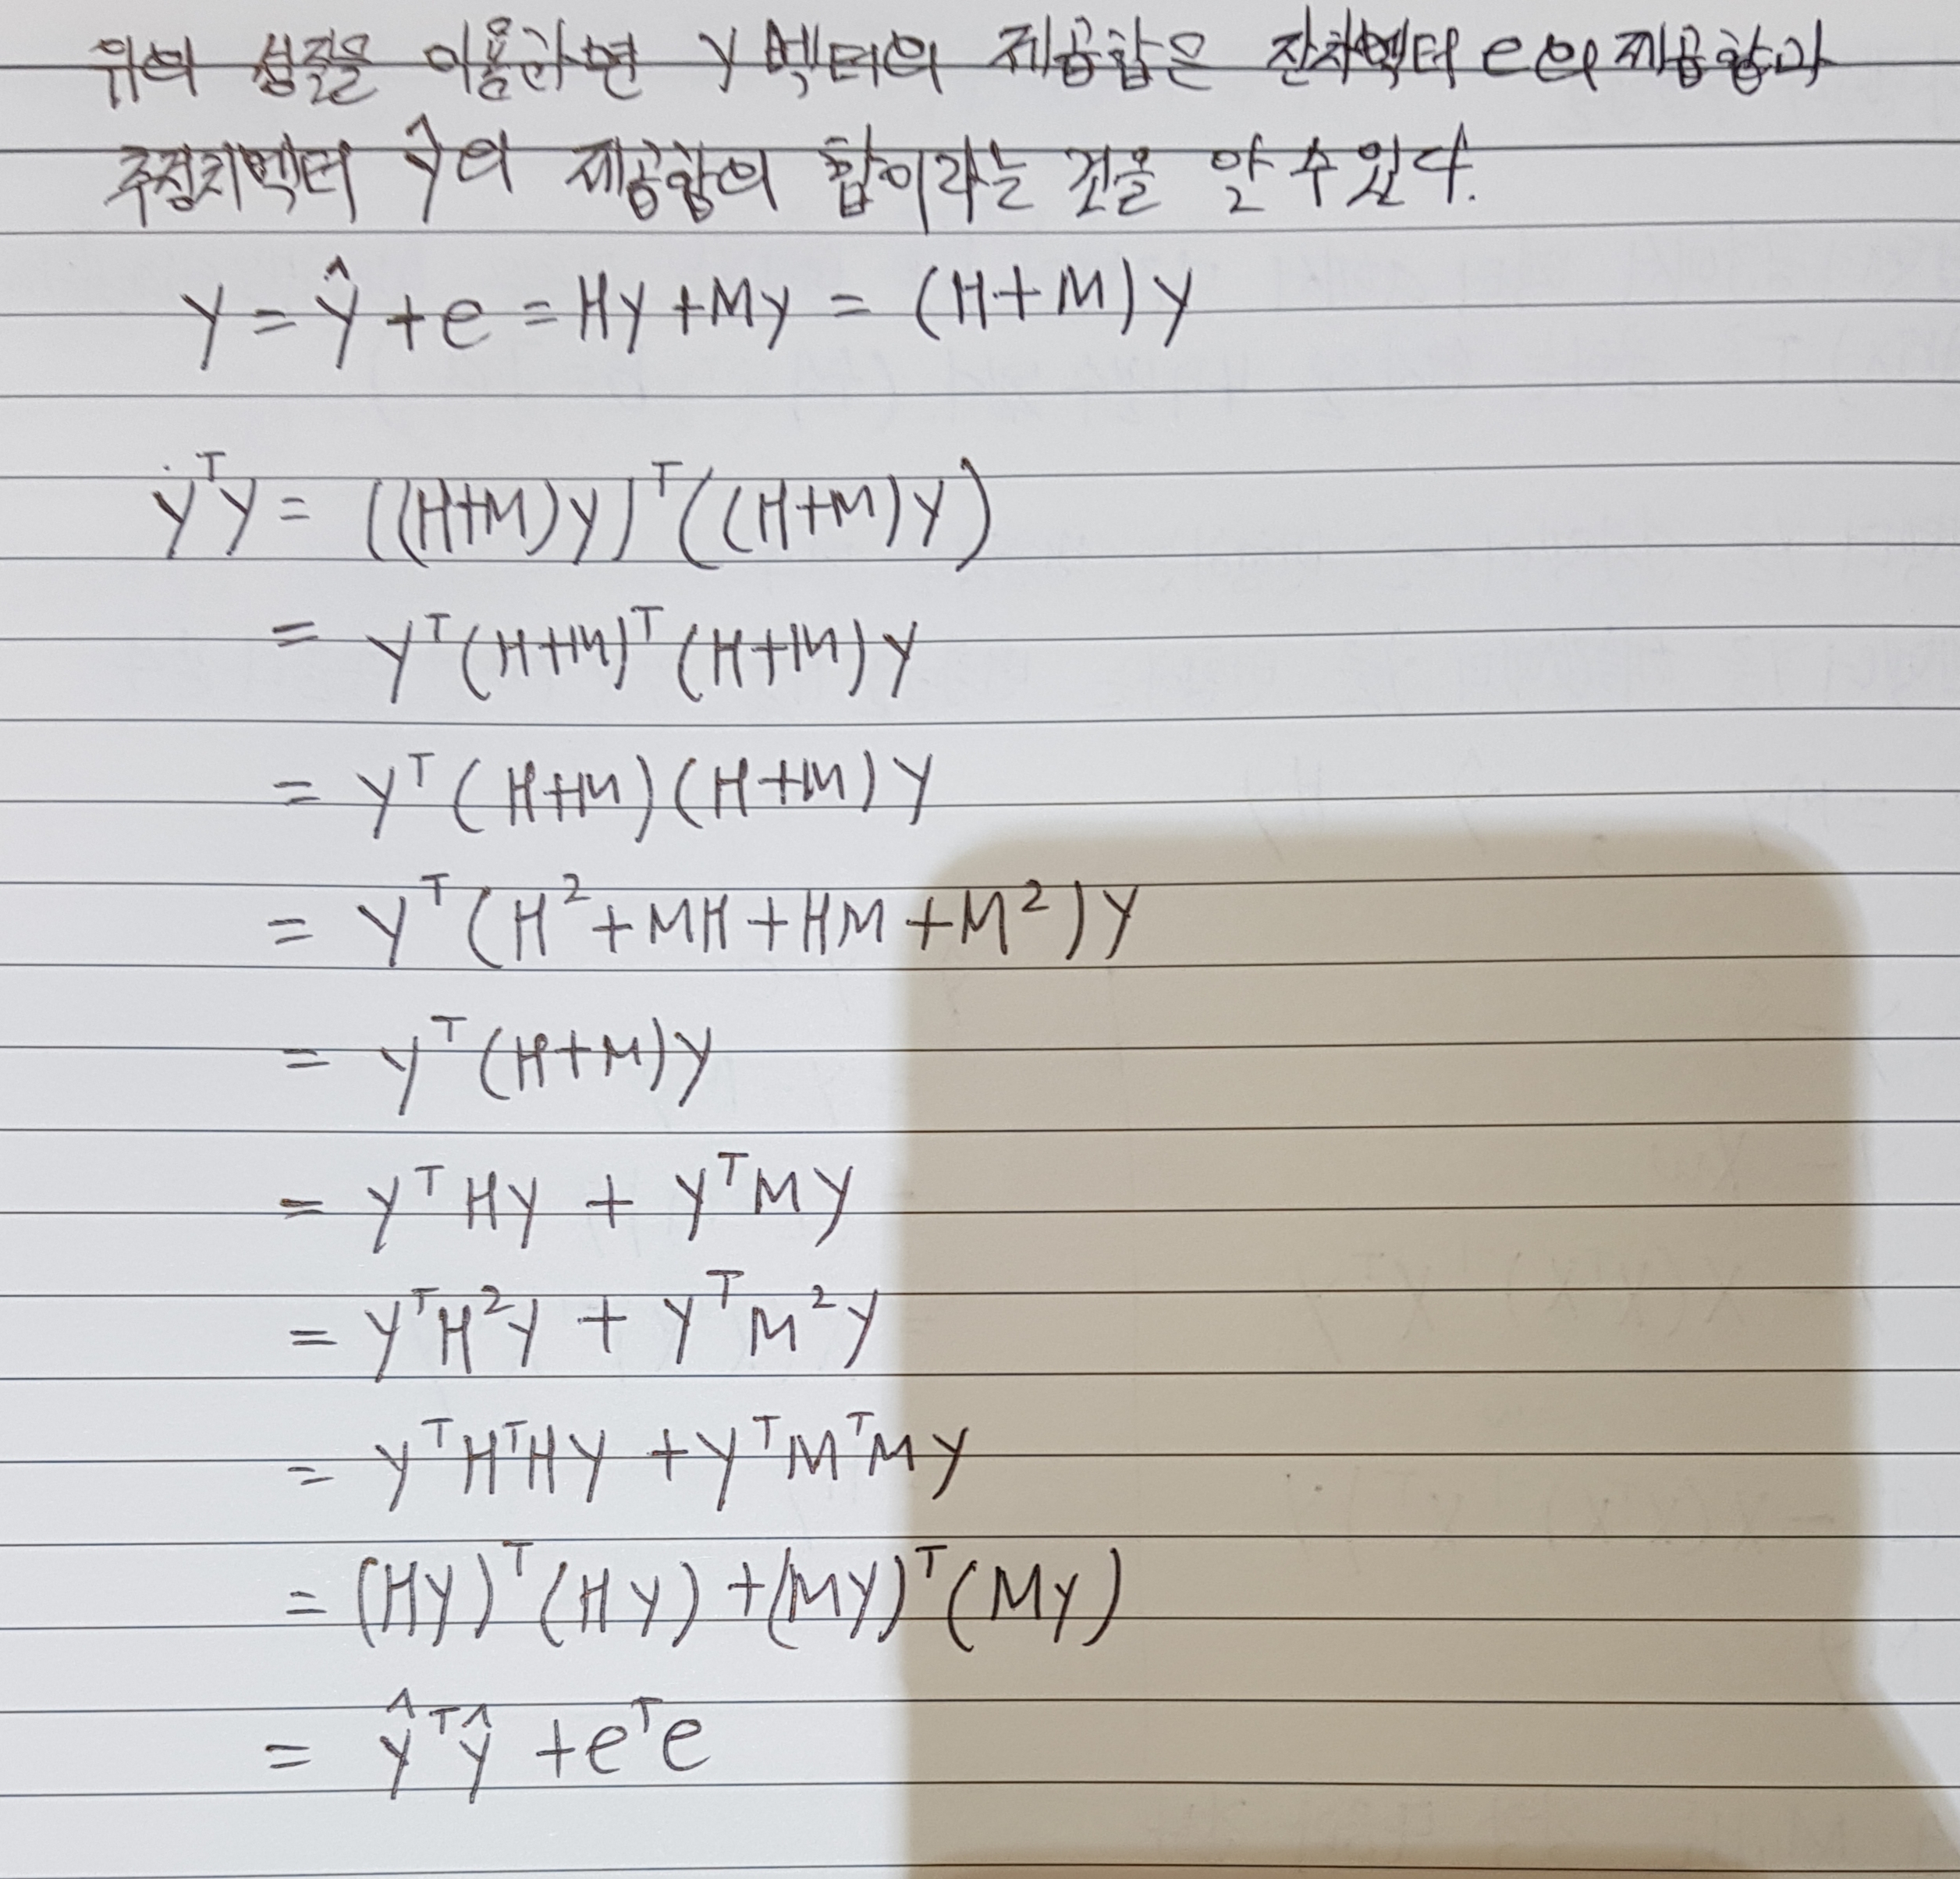 위의 성질을 이용하면 y 벡터의 제곱합은 잔차벡터 e의 제곱합과
추정치벡터 ŷ의 제곱합의 합이라는 것을 알 수 있다.
y = ŷ + e = Hy + My = (H+M)y
yᵀy = ((H+M)y)ᵀ((H+M)y)
= yᵀ(H+M)ᵀ(H+M)y
= yᵀ(H+M)(H+M)y
= yᵀ(H²+MH+HM+M²)y
= yᵀ(H+M)y
= yᵀHy + yᵀMy
= yᵀH²y + yᵀM²y
= yᵀHᵀHy + yᵀMᵀMy
= (Hy)ᵀ(Hy) + (My)ᵀ(My)
= ŷᵀŷ + eᵀe